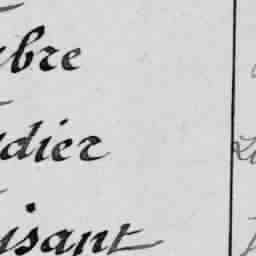 bre
dier
isant